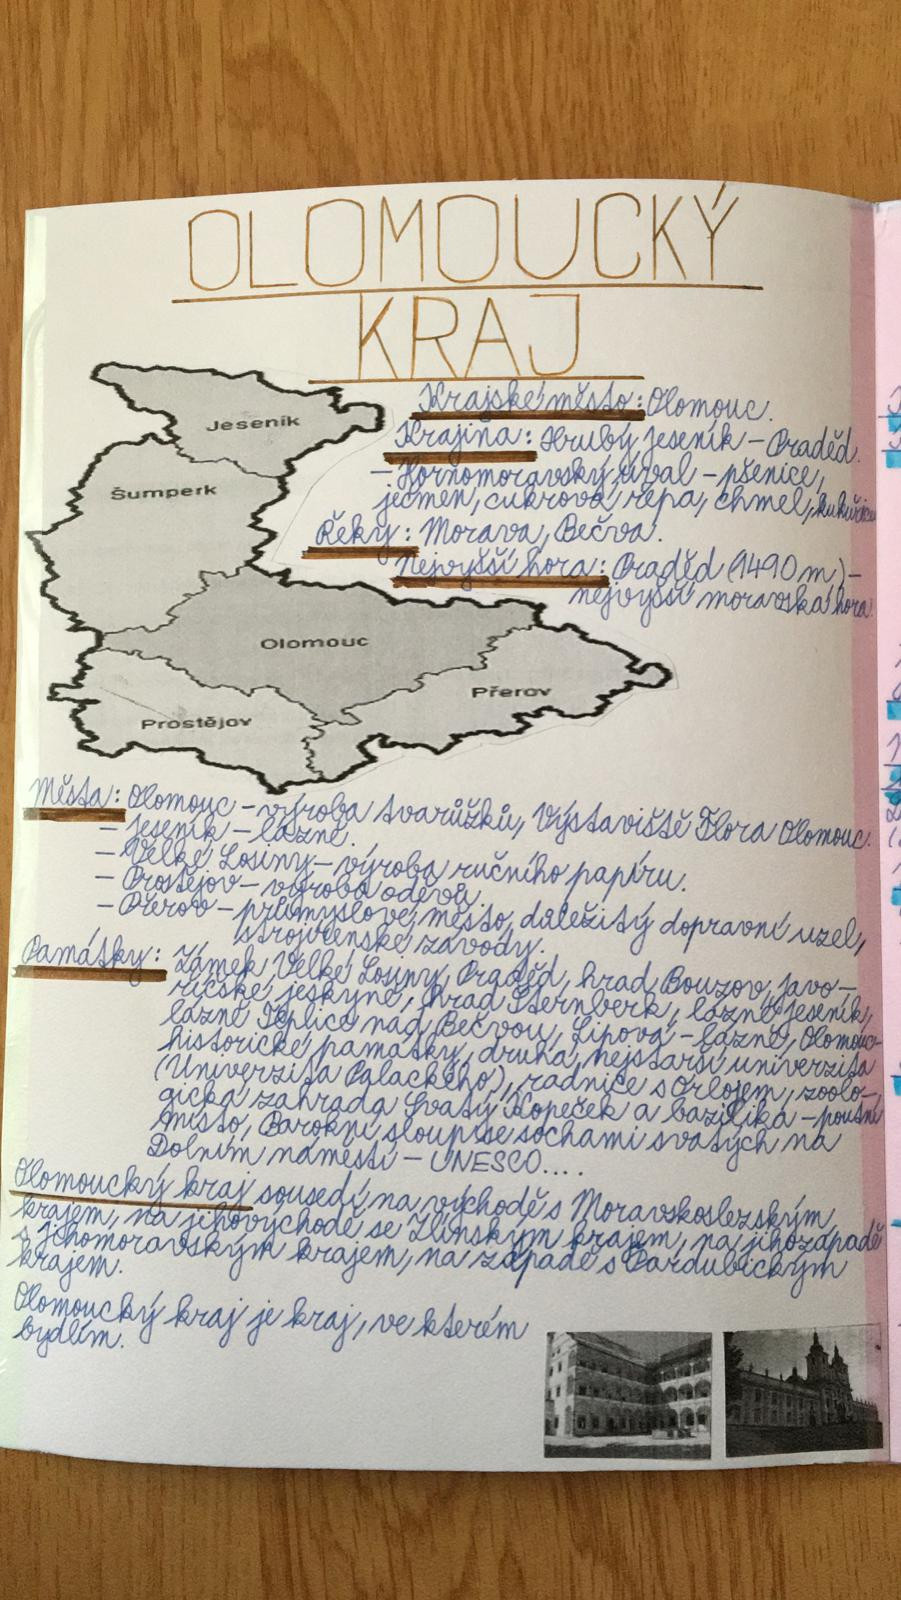 OLOMOUCKÝ
KRAJ
Jeseník
Šumperk
Olomouc
Přerov
Prostějov
Krajské město: Olomouc.
Krajina: Hrubý Jeseník - Praděd.
- Hornomoravský úval - pšenice,
ječmen, cukrová řepa, chmel, kukuřice
Řeky: Morava, Bečva.
Nejvyšší hora: Praděd (1490 m) -
nejvyšší moravská hora.
Města: Olomouc - výroba tvarůžků, Výstaviště Flora Olomouc.
- Jeseník - lázně.
- Velké Losiny - výroba ručního papíru.
- Prostějov - výroba oděvů.
- Přerov - průmyslové město, důležitý dopravní uzel,
strojírenské závody.
Památky: Zámek Velké Losiny, Praděd, hrad Bouzov, Javo-
říčské jeskyně, hrad Šternberk, lázně Jeseník,
lázně Teplice nad Bečvou, Lipová - lázně, Olomouc-
historické památky, druhá nejstarší univerzita
(Univerzita Palackého), radnice s orlojem, zoolo-
gická zahrada Svatý Kopeček a bazilika - poutní
místo, Barokní sloup se sochami svatých na
Dolním náměstí - UNESCO....
Olomoucký kraj sousedí na východě s Moravskoslezským
krajem, na jihovýchodě se Zlínským krajem, na jihozápadě
s Jihomoravským krajem, na západě s Pardubickým
krajem.
Olomoucký kraj je kraj, ve kterém
bydlím.